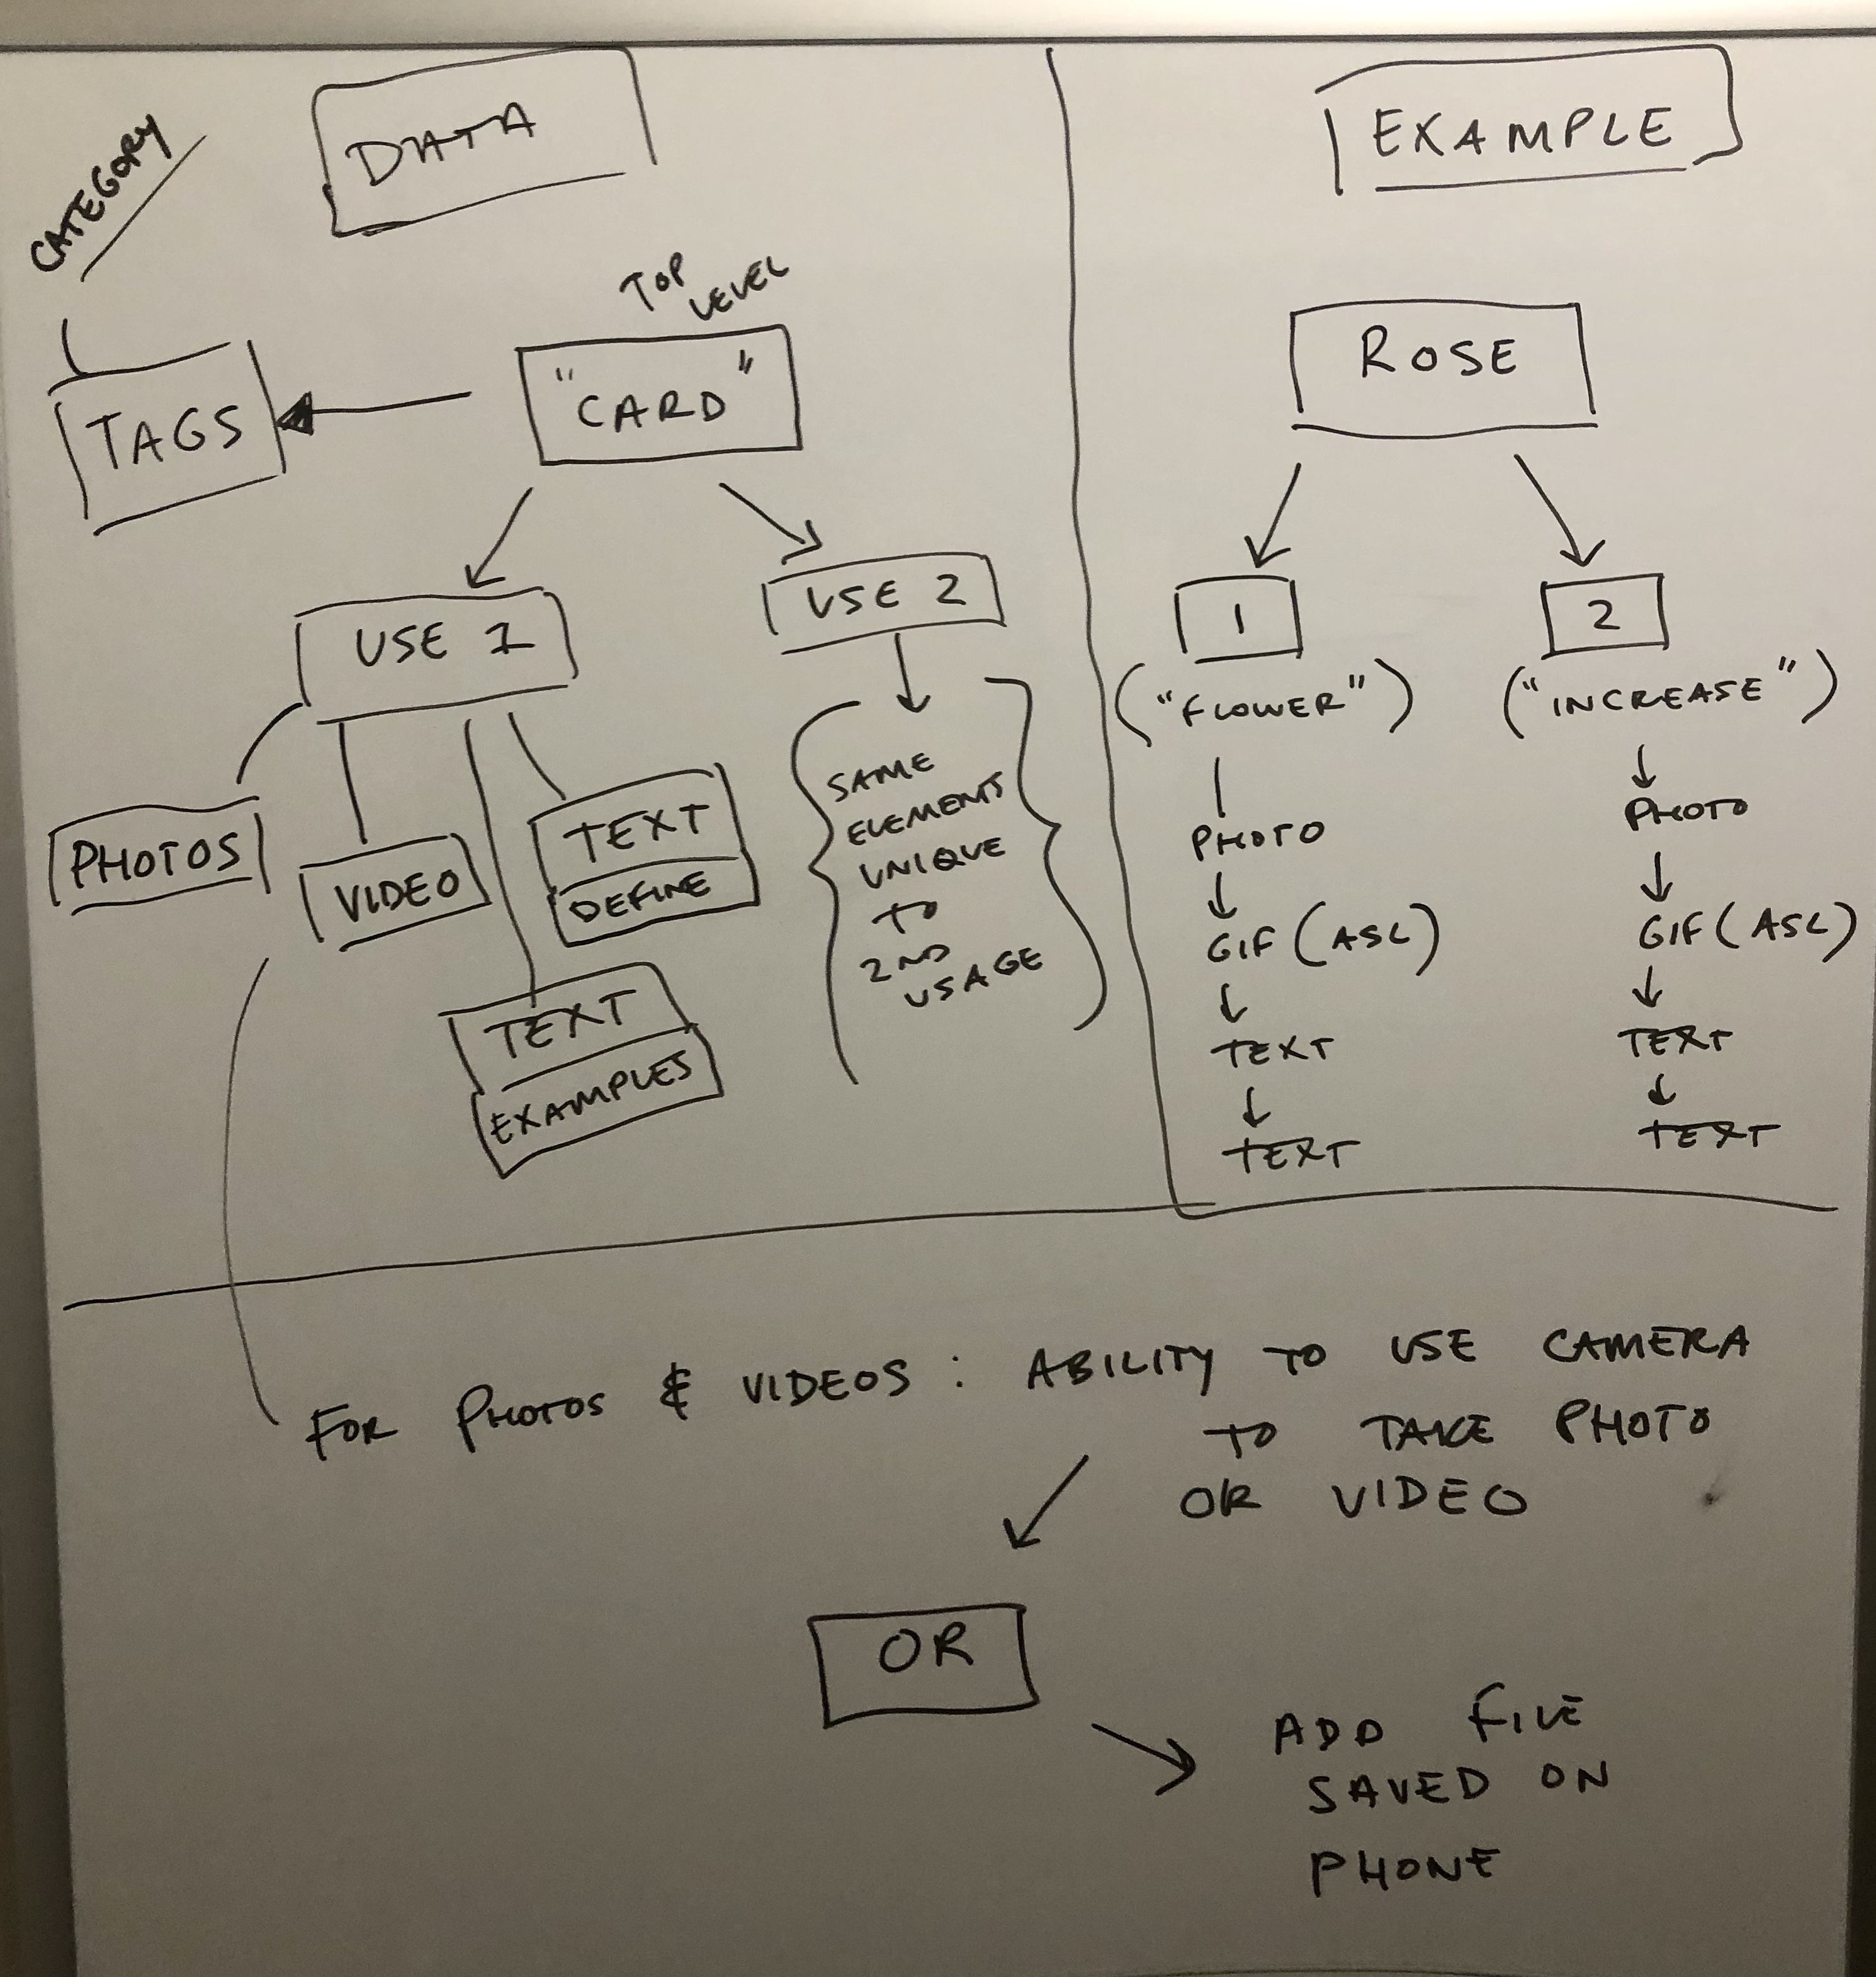 DATA
CATEGORY
TOP
LEVEL
"CARD"
TAGS
USE 1
USE 2
PHOTOS
VIDEO
TEXT
DEFINE
TEXT
EXAMPLES
SAME
ELEMENTS
UNIQUE
TO
2ND
USAGE
EXAMPLE
ROSE
1
("FLOWER")
PHOTO
GIF (ASL)
TEXT
TEXT
2
("INCREASE")
PHOTO
GIF (ASL)
TEXT
TEXT
FOR PHOTOS & VIDEOS : ABILITY TO USE CAMERA
TO TAKE PHOTO
OR VIDEO
OR
ADD FILE
SAVED ON
PHONE